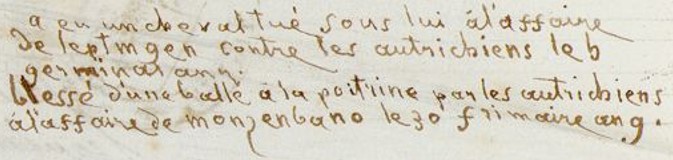 a eu un cheval tué sous lui a l'affaire
De leptmgen contre les autrichiens le 6
germinal an 7.
blessé d'une balle a la poitrine par les autrichiens
a l'affaire de monzenbano le 30 frimaire an 9.